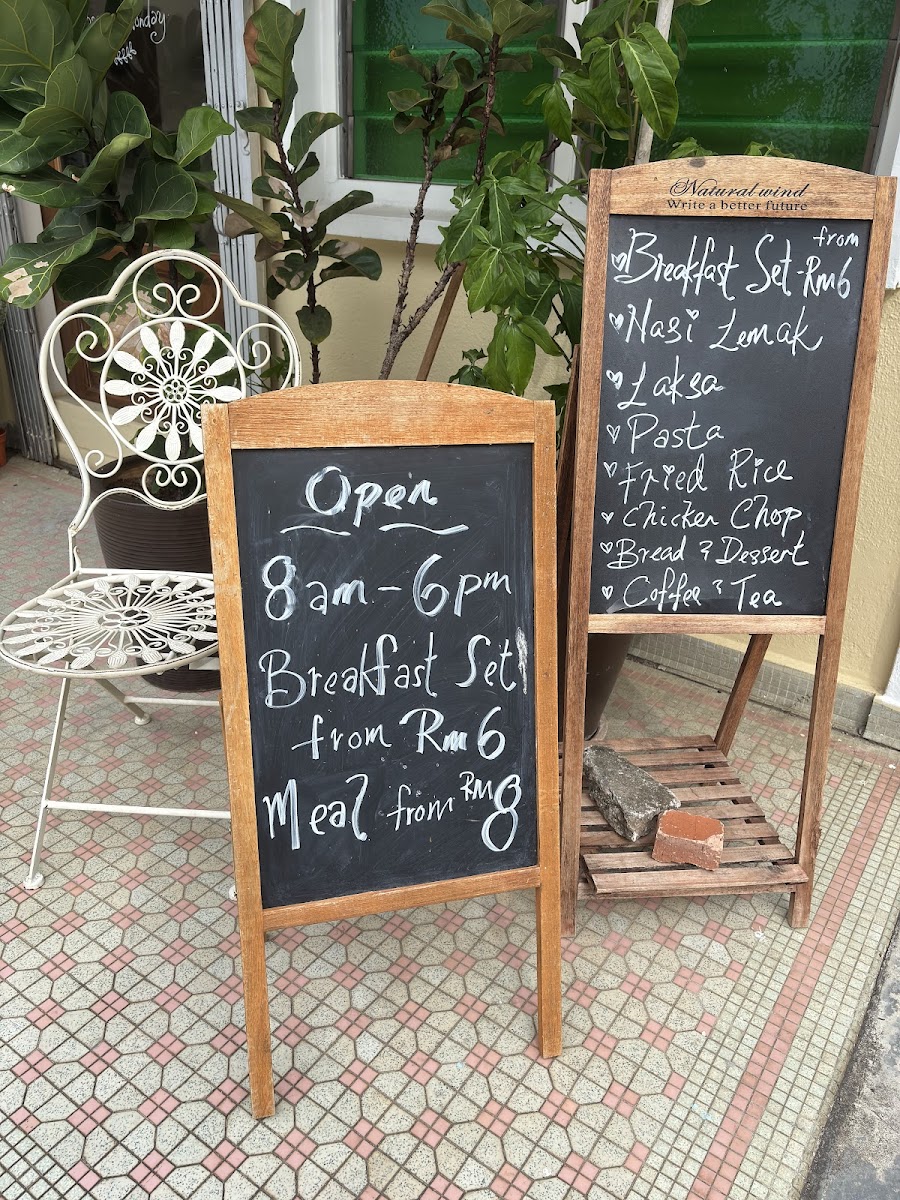 onday
Open
8am - 6pm
Breakfast Set
from Rm6
Meal from RM8
Natural wind
Write a better future
from
Breakfast Set - Rm6
Nasi Lemak
Laksa
Pasta
Fried Rice
Chicken Chop
Bread & Dessert
Coffee & Tea